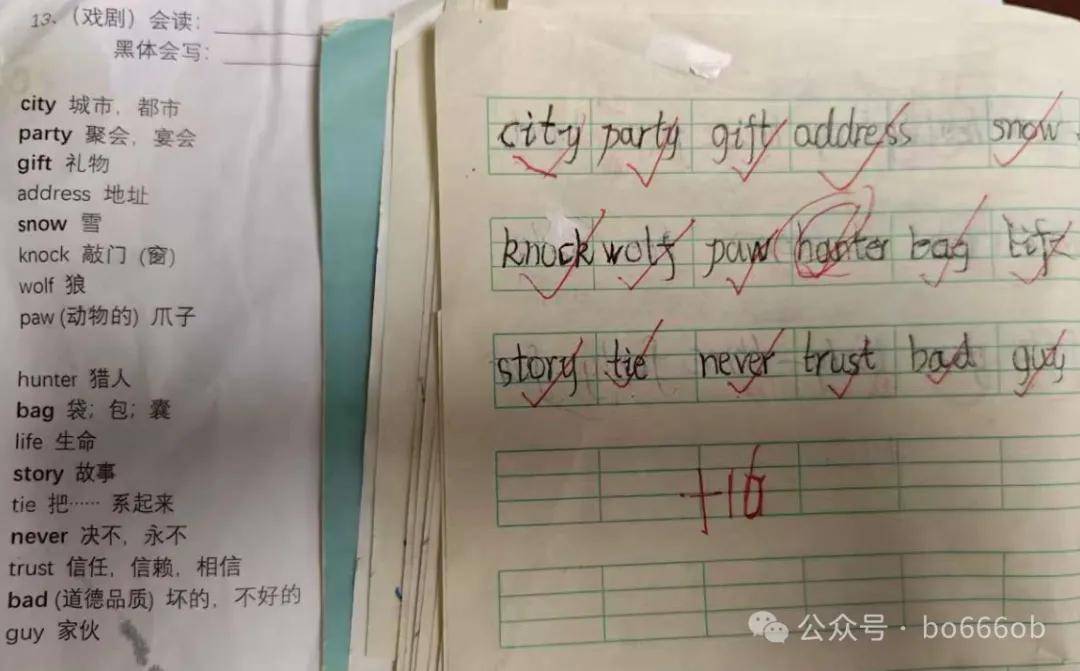 13、（戏剧）会读：
黑体会写：
city 城市，都市
party 聚会，宴会
gift 礼物
address 地址
snow 雪
knock 敲门（窗）
wolf 狼
paw (动物的) 爪子
hunter 猎人
bag 袋；包；囊
life 生命
story 故事
tie 把…… 系起来
never 决不，永不
trust 信任，信赖，相信
bad (道德品质) 坏的，不好的
guy 家伙
city party gift address snow
knock wolf paw bag
story tie never trust bad guy
+16
公众号 · bo666ob